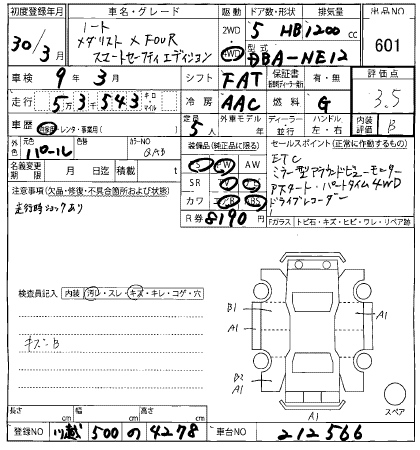 初度登録年月 車名・グレード 駆動 ドア数・形状 排気量 出品NO
30/3月 ノート 2WD 5 HB 1200cc 601
メダリスト X FOUR 4WD 型式
スマートセーフティエディション DBA-NE12
車検 9年3月 シフト FAT 保証書 有・無 評価点
走行 5万3千543 キロ・マイル 冷房 AAC 燃料 G 3.5
車歴 自家用 レンタ・事業用( ) 定員 5人 外車モデル 年式 ディーラー 並行 ハンドル 左・右 内装 B
外色 元色 パール 色替 カラーNO QAB 装備品(純正品に限る) セールスポイント(正常に作動するもの)
名義変更期限 月 日迄 積載 t PS PW AW ETC
SR ナビ TV ミラー型アラウンドビューモニター
注意事項(欠品・修復・不具合箇所および状態) カワ エアB ABS アイスタート・パートタイム4WD
走行時ショックあり R券 8190円 ドライブレコーダー
Fガラス トビ石・キズ・ヒビ・ワレ・リペア跡
検査員記入 内装 汚レ・スレ・キズ・キレ・コゲ・穴
キズ・B
B1 A1
A1 A1
B2
A1
A1 スペア
長さ cm 幅 cm 高さ cm
登録NO 川越 500 の 4278 車台NO 212566